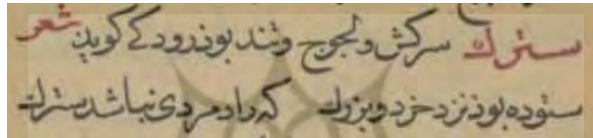 سترك سركش ولجوج وتند بوذ رودكى كويذ شعر
ستوده بوذ نزد خرد وبزرك كه راد مردى نباشد سترك